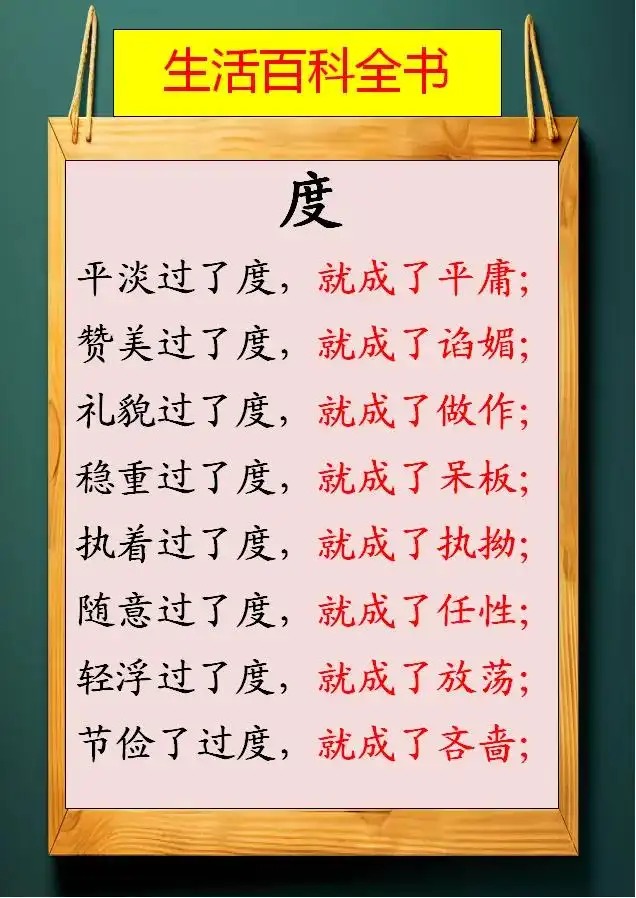 生活百科全书
度
平淡过了度，就成了平庸；
赞美过了度，就成了谄媚；
礼貌过了度，就成了做作；
稳重过了度，就成了呆板；
执着过了度，就成了执拗；
随意过了度，就成了任性；
轻浮过了度，就成了放荡；
节俭了过度，就成了吝啬；